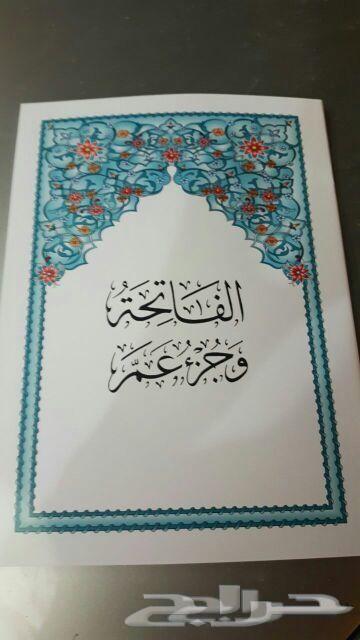 الفَاتِحَةُ
وَجُزْءُ عَمَّ
حراج